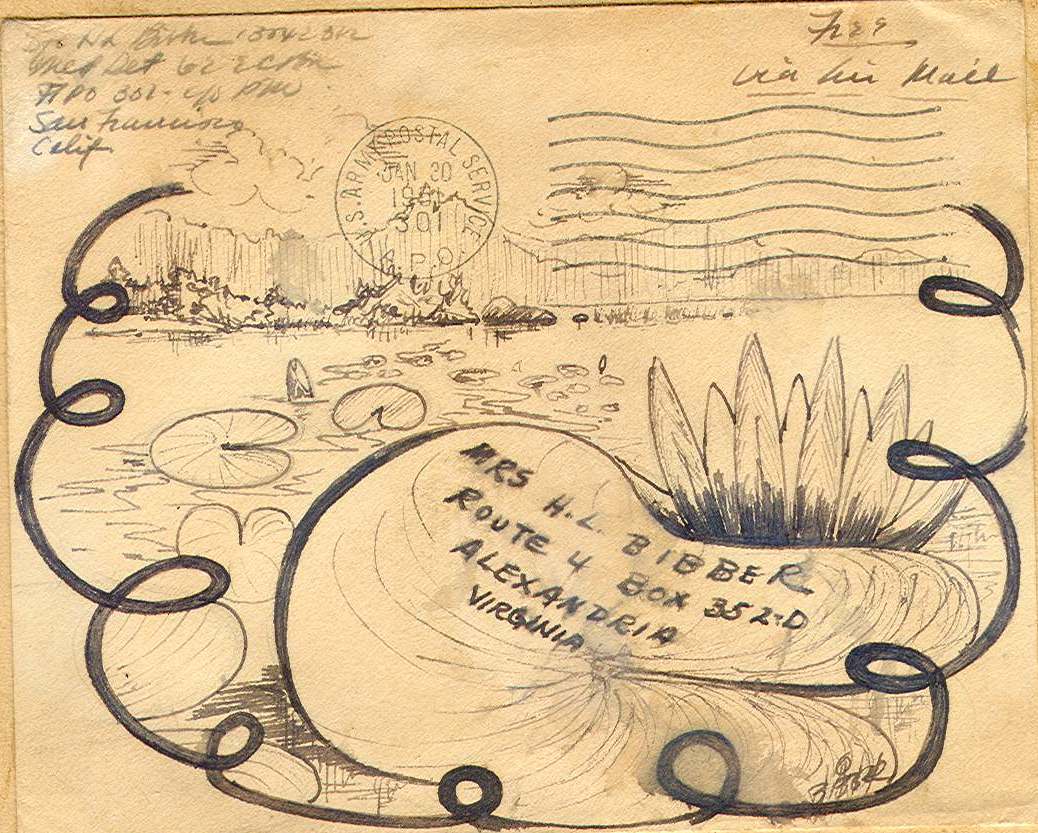 Med Det
APO 301 - c/o PM
San Francisco
Calif
Free
via Air Mail
U.S. ARMY POSTAL SERVICE
JAN 20
301
A.P.O.
MRS H.L. BIBBER
ROUTE 4 BOX 352-D
ALEXANDRIA
VIRGINIA